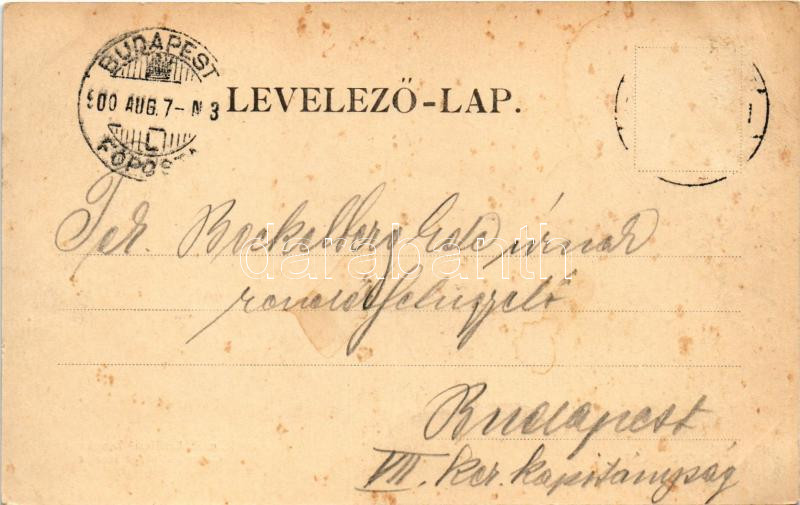 BUDAPEST
900 AUG. 7 - N 3
FŐPOSTA
LEVELEZŐ-LAP.
Tek. Bockelberg Ede úrnak
rendőrfelügyelő
darabanth
Budapest
VII. ker. kapitányság